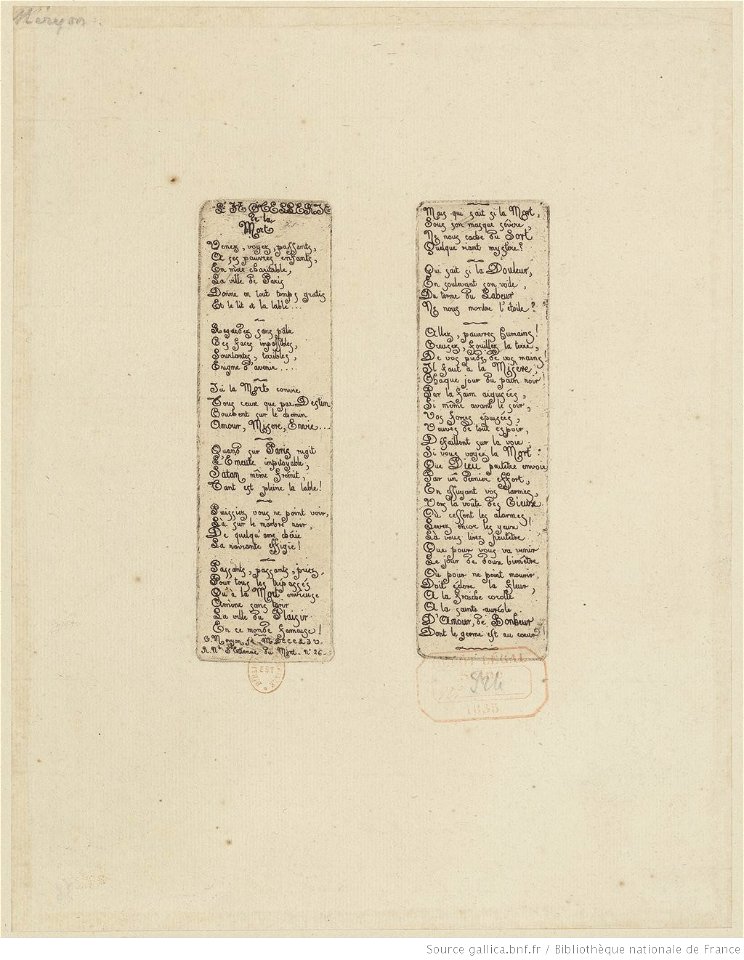 Méryon
L'HOTELLERIE
De la
Mort
Venez, voyez, passants,
A ses pauvres enfants,
En mère charitable,
La ville de Paris
Donne en tout temps gratis
Et le lit et la table...
Regardez sans pâlir
Ces faces impassibles,
Souriantes, terribles,
Enigme d'avenir...
Ici la Mort convie
Tous ceux que par Destin,
Couchent sur le chemin
Amour, Misere, Envie...
Quand sur Paris rugit
L'Emeute impitoyable,
Satan même frémit,
Tant est pleine la table!
Puissiez vous ne point voir,
Là sur le marbre noir,
De quelqu'ame chérie
La navrante effigie!
Passants, passants, priez
Pour tous les trépassés
Qu'à la Mort envieuse
Amène sans tarir
La ville du Plaisir
En ce monde fameuse!
C. Meryon ft. MDCCCLIV.
R. Nve. St Etienne du Mont. No 26.
Mais qui sait si la Mort,
Sous son masque sévère,
Ne nous cache du Sort
Quelque riant mystère?
Qui sait si la Douleur,
En soulevant son voile,
Du terme du Labeur
Ne nous montre l'étoile?
Allez, pauvres humains!
Creusez, fouillez la terre,
De vos pieds, de vos mains!
Il faut à la Misère
Chaque jour du pain noir!
Par la faim aiguisées,
Si même avant le soir,
Vos forces épuisées,
Veuves de tout espoir,
Défaillent sur la voie
Si vous voyez la Mort
Que Dieu peutêtre envoie
Par un dernier effort,
En essuyant vos larmes,
Vers la voûte des Cieux
Où cessent les alarmes
Levez encor les yeux!
Là vous lirez peutêtre
Que pour vous va venir
Le jour de doux bienêtre
Où pour ne point mourir
Doit éclore la fleur,
A la fraiche corolle
A la sainte auréole
D'Amour, de Bonheur
Dont le germe est au cœur!
Source gallica.bnf.fr / Bibliothèque nationale de France